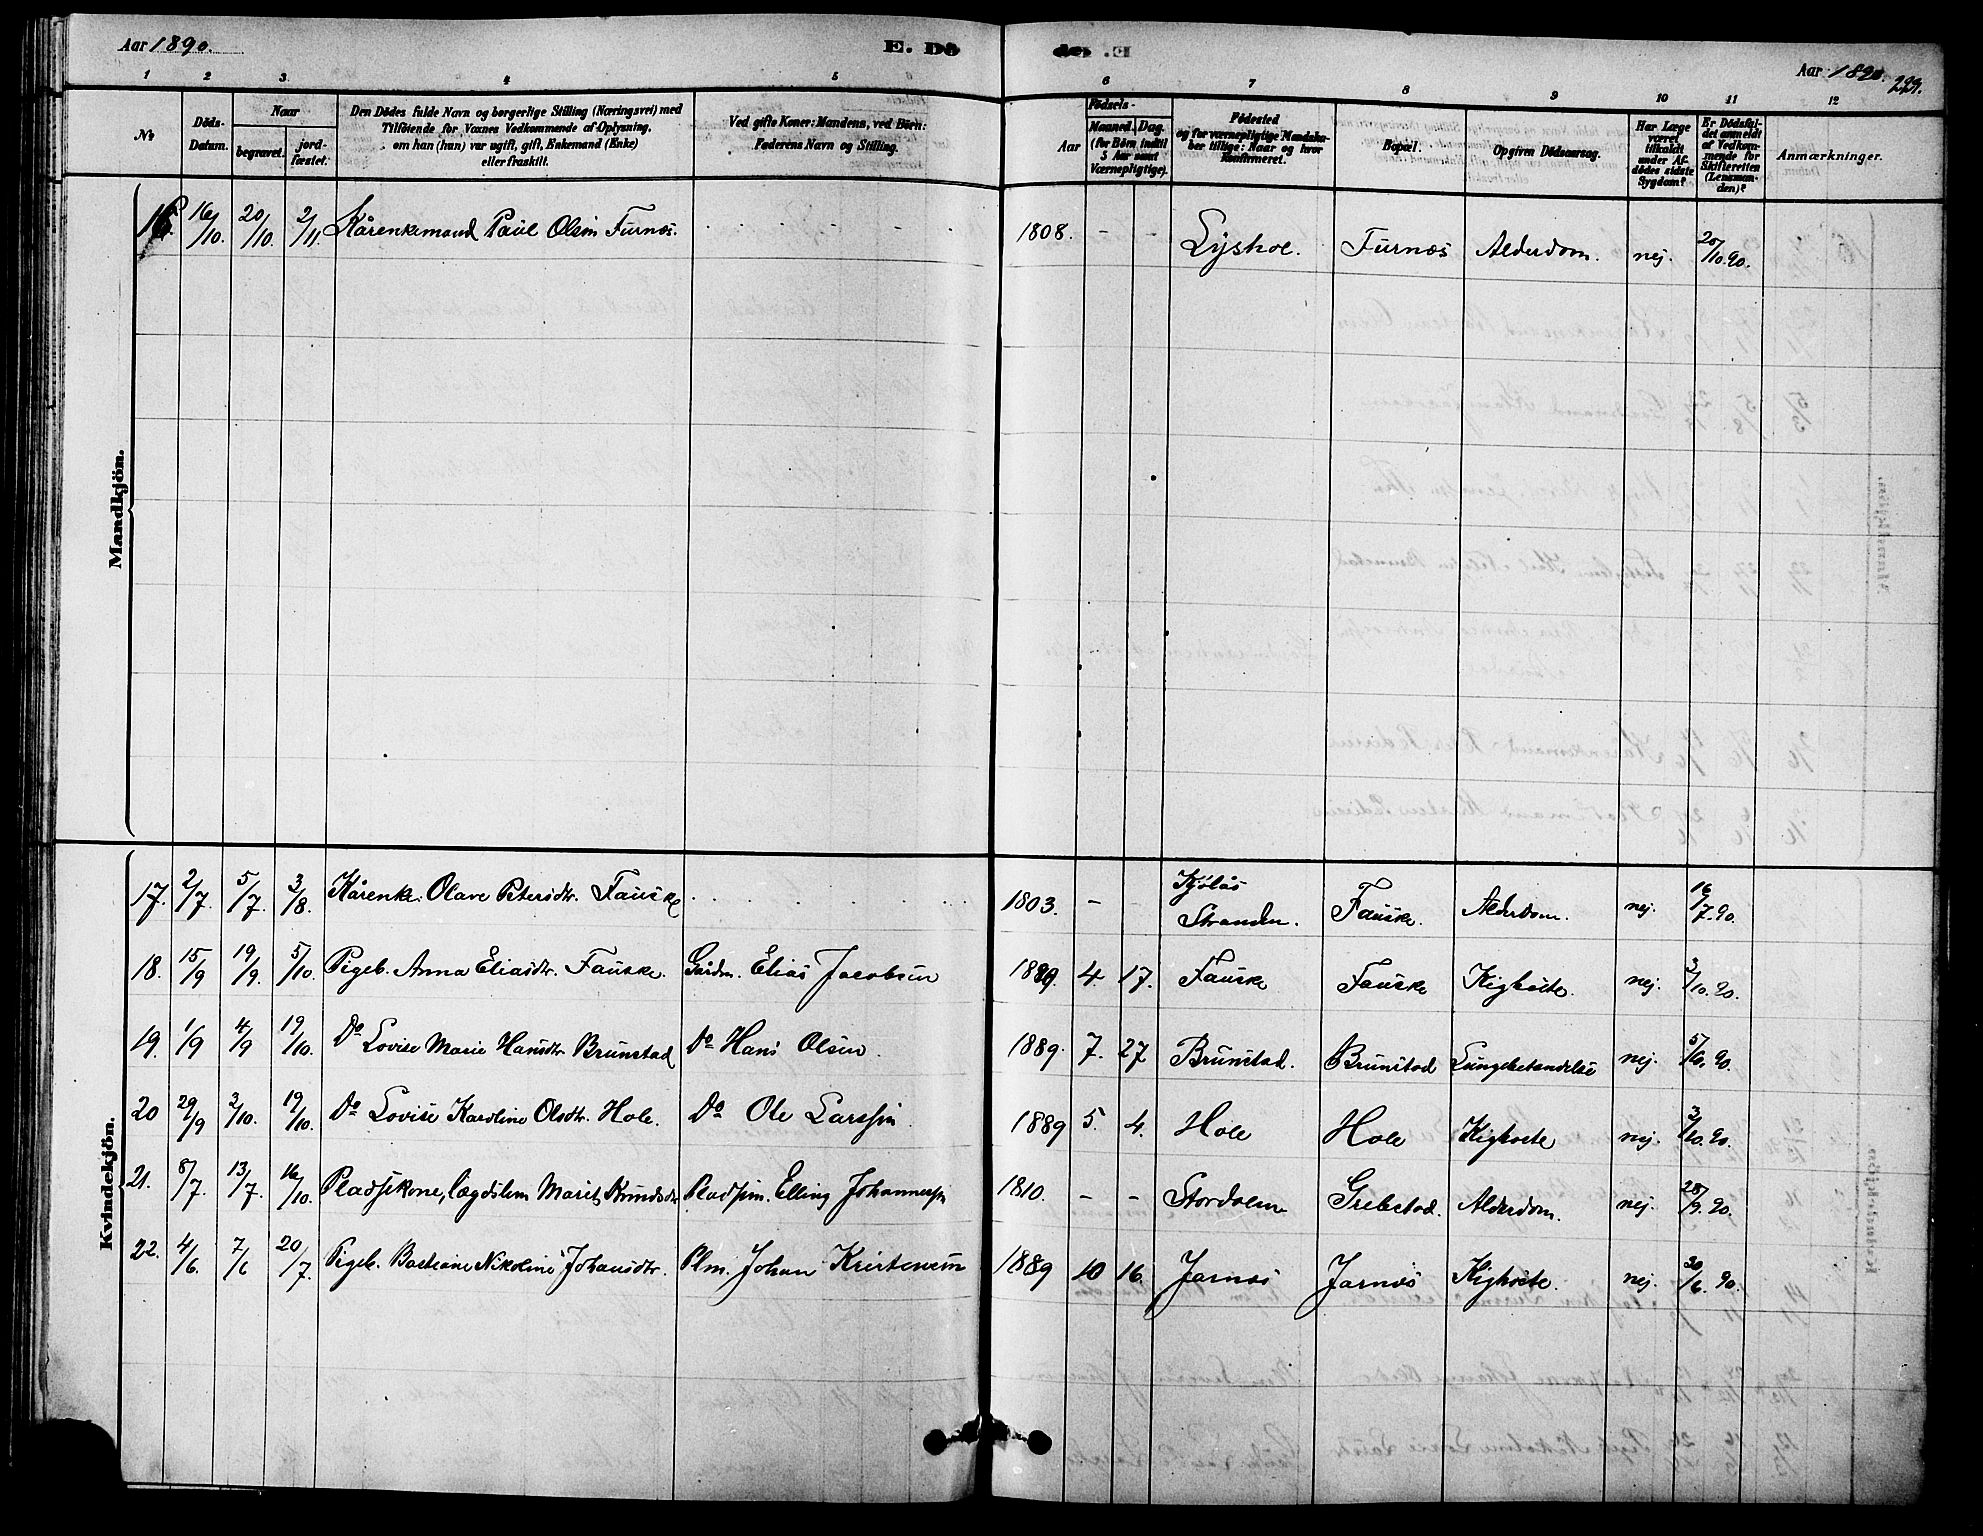 Aar 1890.
E. Dö
Aar 1890. 229.
1 2 3. 4 5 6 7 8 9 10 11 12
No
Döds-Datum.
Naar
begravet. jord-fæstet.
Den Dödes fulde Navn og borgerlige Stilling (Næringsvei) med
Tilföiende for Voxnes Vedkommende af Oplysning,
om han (hun) var ugift, gift, Enkemand (Enke)
eller fraskilt.
Ved gifte Koner: Mandens, ved Börn:
Faderens Navn og Stilling.
Födsels-
Aar
Maaned. Dag.
(for Börn indtil
5 Aar samt
Værnepligtige).
Födested
og for værnepligtige Mandskaber tillige: Naar og hvor
Konfirmeret.
Bopæl.
Opgiven Dödsaarsag.
Har Læge
været
tilkaldt
under Afdödes sidste
Sygdom?
Er Dödsfaldet anmeldt
af Vedkommende for
Skifteretten
(Lensmanden)?
Anmærkninger.
Mandkjön.
16. 16/10. 20/10. 2/11. Kårenkemand Paul Olsen Furnæs. 1808. - - Lyshol. Furnæs Alderdom. nej. 20/10.90.
Kvindekjön.
17. 2/7. 5/7. 3/8. Kårenke. Olave Petersdtr. Fauske 1803. - - Kjölås Stranden. Fauske. Alderdom. nej. 16/7.90.
18. 15/9 19/9. 5/10. Pigeb. Anna Eliasdtr. Fauske. Gårdm. Elias Jacobsen 1889. 4. 17. Fauske Fauske Kighoste. nej. 3/10.90.
19. 1/9 4/9 19/10. Do Lovise Marie Hansdtr Brunstad Do Hans Olsen. 1889. 7. 27 Brunstad. Brunstad Lungebetændelse nej. 5/10.90.
20 29/9 2/10. 19/10. Do Lovise Karoline Olsdtr. Hole. Do Ole Larssen. 1889 5. 4. Hole Hole Kighoste nej. 3/10.90.
21. 8/7. 13/7. 16/10. Pladskone, lægdslem Marit Knudsdtr Pladsm. Elling Johannessen 1810. - - Stordalen Grebstad. Alderdom. nej. 28/9.90.
22. 4/6. 7/6 20/7. Pigeb. Bastiane Nikoline Johansdtr. Plm. Johan Kristensen 1889 10 16. Jarnæs Jarnæs Kighoste. nej. 30/6.90.